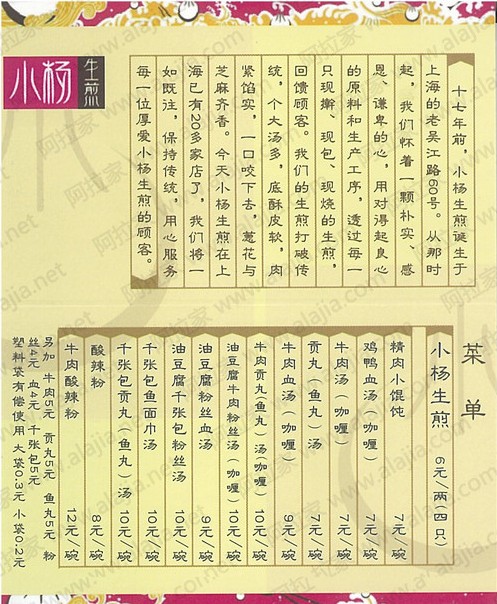 小杨
生煎
十七年前，小杨生煎诞生于
上海的老吴江路60号。从那时
起，我们怀着一颗朴实、感
恩、谦卑的心，用对得起良心
的原料和生产工序，透过每一
只现擀、现包、现烧的生煎，
回馈顾客。我们的生煎打破传
统，个大汤多，底酥皮软，肉
紧馅实，一口咬下去，葱花与
芝麻齐香。今天小杨生煎在上
海已有20多家店了，我们将一
如既往，保持传统，用心服务
每一位厚爱小杨生煎的顾客。
菜单
小杨生煎 6元/两(四只)
精肉小馄饨 7元/碗
鸡鸭血汤(咖喱) 7元/碗
牛肉汤(咖喱) 7元/碗
贡丸(鱼丸)汤 7元/碗
牛肉血汤(咖喱) 9元/碗
牛肉贡丸(鱼丸)汤(咖喱) 10元/碗
油豆腐牛肉粉丝汤(咖喱) 10元/碗
油豆腐粉丝血汤 9元/碗
油豆腐千张包粉丝汤 10元/碗
千张包鱼面巾汤 10元/碗
千张包贡丸(鱼丸)汤 10元/碗
酸辣粉 8元/碗
牛肉酸辣粉 12元/碗
另加 牛肉5元 贡丸5元 鱼丸5元 粉
丝4元 血4元 千张包5元
塑料袋有偿使用 大袋0.3元 小袋0.2元
阿拉家 www.alajia.net